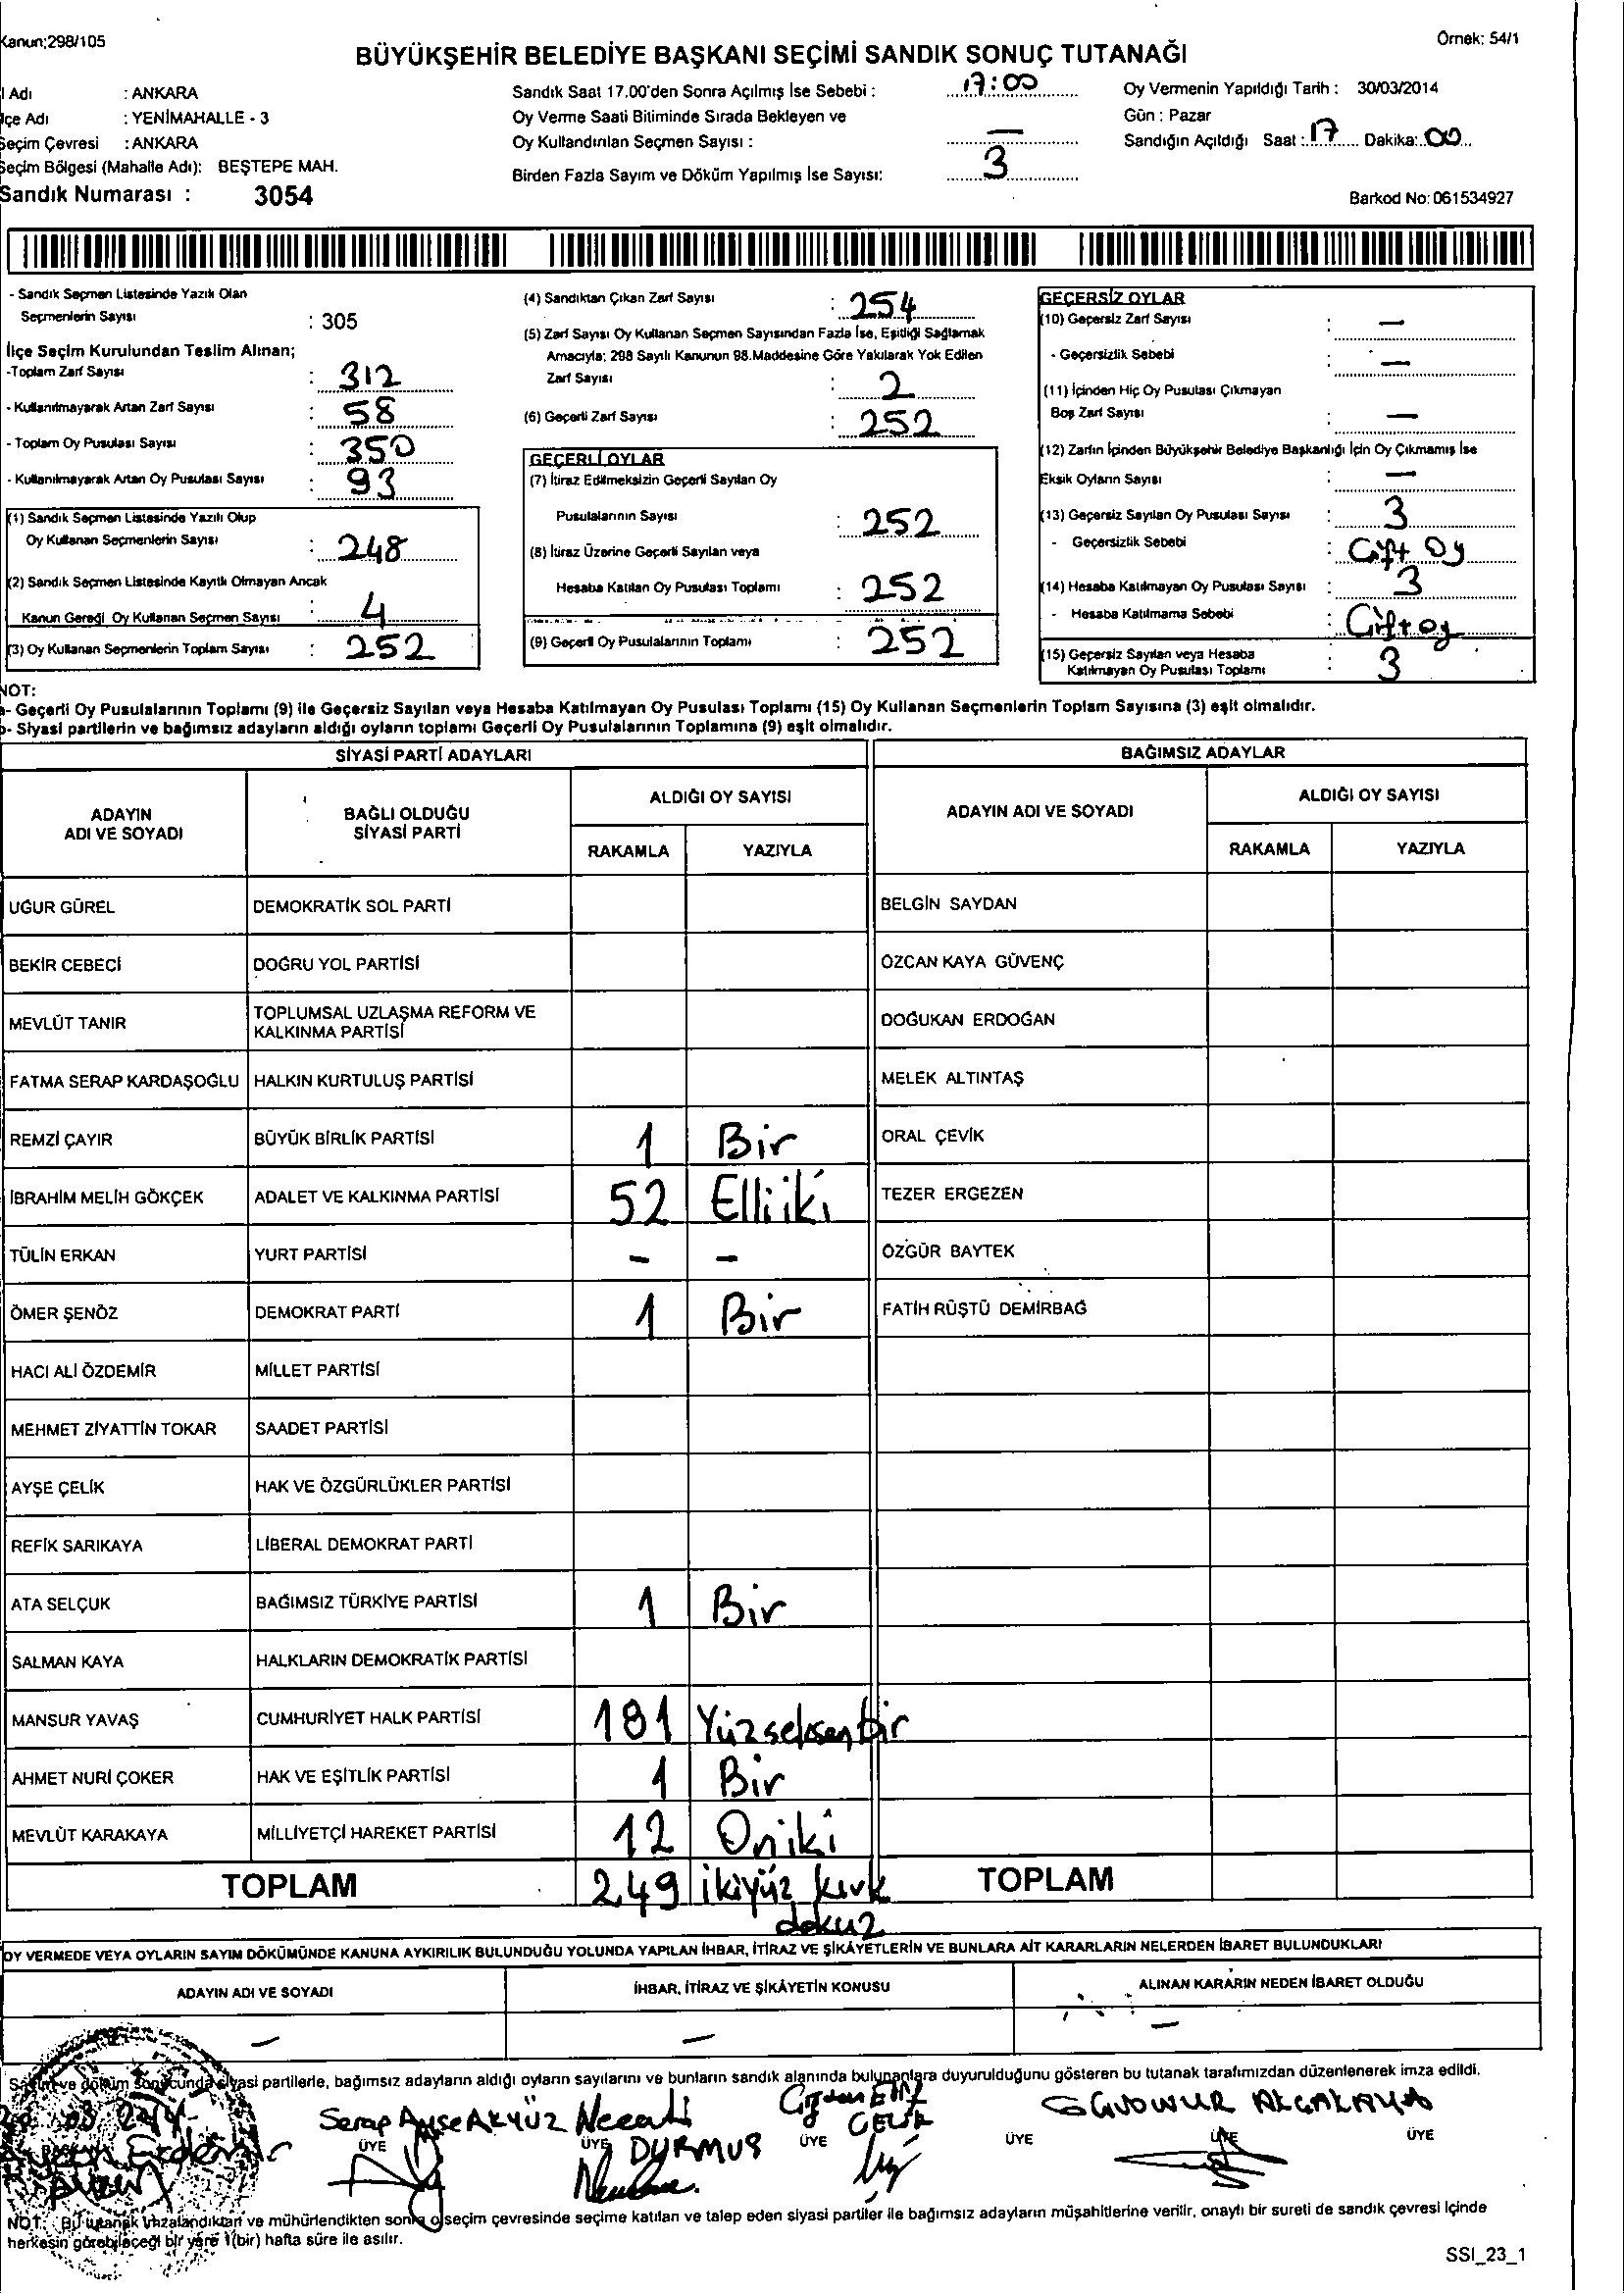 Kanun;298/105
Örnek: 54/1
BÜYÜKŞEHİR BELEDİYE BAŞKANI SEÇİMİ SANDIK SONUÇ TUTANAĞI
l Adı : ANKARA
lçe Adı : YENİMAHALLE - 3
Seçim Çevresi : ANKARA
Seçim Bölgesi (Mahalle Adı): BEŞTEPE MAH.
Sandık Numarası : 3054
Sandık Saat 17.00'den Sonra Açılmış İse Sebebi : 17:00
Oy Verme Saati Bitiminde Sırada Bekleyen ve
Oy Kullandırılan Seçmen Sayısı : —
Birden Fazla Sayım ve Döküm Yapılmış İse Sayısı: 3
Oy Vermenin Yapıldığı Tarih : 30/03/2014
Gün : Pazar
Sandığın Açıldığı Saat : 17 Dakika: 00
Barkod No: 061534927
- Sandık Seçmen Listesinde Yazılı Olan
Seçmenlerin Sayısı : 305
İlçe Seçim Kurulundan Teslim Alınan;
-Toplam Zarf Sayısı : 312
- Kullanılmayarak Artan Zarf Sayısı : 58
- Toplam Oy Pusulası Sayısı : 350
- Kullanılmayarak Artan Oy Pusulası Sayısı : 93
(1) Sandık Seçmen Listesinde Yazılı Olup
Oy Kullanan Seçmenlerin Sayısı : 248
(2) Sandık Seçmen Listesinde Kayıtlı Olmayan Ancak
Kanun Gereği Oy Kullanan Seçmen Sayısı : 4
(3) Oy Kullanan Seçmenlerin Toplam Sayısı : 252
(4) Sandıktan Çıkan Zarf Sayısı : 254
(5) Zarf Sayısı Oy Kullanan Seçmen Sayısından Fazla İse, Eşitliği Sağlamak
Amacıyla; 298 Sayılı Kanunun 98.Maddesine Göre Yakılarak Yok Edilen
Zarf Sayısı : 2
(6) Geçerli Zarf Sayısı : 252
GEÇERLİ OYLAR
(7) İtiraz Edilmeksizin Geçerli Sayılan Oy
Pusulalarının Sayısı : 252
(8) İtiraz Üzerine Geçerli Sayılan veya
Hesaba Katılan Oy Pusulası Toplamı : 252
(9) Geçerli Oy Pusulalarının Toplamı : 252
GEÇERSİZ OYLAR
(10) Geçersiz Zarf Sayısı : —
- Geçersizlik Sebebi : —
(11) İçinden Hiç Oy Pusulası Çıkmayan
Boş Zarf Sayısı : —
(12) Zarfın İçinden Büyükşehir Belediye Başkanlığı İçin Oy Çıkmamış İse
Eksik Oyların Sayısı : —
(13) Geçersiz Sayılan Oy Pusulası Sayısı : 3
- Geçersizlik Sebebi : Çift Oy
(14) Hesaba Katılmayan Oy Pusulası Sayısı : 3
- Hesaba Katılmama Sebebi : Çift oy
(15) Geçersiz Sayılan veya Hesaba
Katılmayan Oy Pusulası Toplamı : 3
NOT:
a- Geçerli Oy Pusulalarının Toplamı (9) ile Geçersiz Sayılan veya Hesaba Katılmayan Oy Pusulası Toplamı (15) Oy Kullanan Seçmenlerin Toplam Sayısına (3) eşit olmalıdır.
b- Siyasi partilerin ve bağımsız adayların aldığı oyların toplamı Geçerli Oy Pusulalarının Toplamına (9) eşit olmalıdır.
SİYASİ PARTİ ADAYLARI
BAĞIMSIZ ADAYLAR
ADAYIN
ADI VE SOYADI
BAĞLI OLDUĞU
SİYASİ PARTİ
ALDIĞI OY SAYISI
RAKAMLA YAZIYLA
ADAYIN ADI VE SOYADI
ALDIĞI OY SAYISI
RAKAMLA YAZIYLA
UĞUR GÜREL DEMOKRATİK SOL PARTİ BELGİN SAYDAN
BEKİR CEBECİ DOĞRU YOL PARTİSİ ÖZCAN KAYA GÜVENÇ
MEVLÜT TANIR TOPLUMSAL UZLAŞMA REFORM VE
KALKINMA PARTİSİ DOĞUKAN ERDOĞAN
FATMA SERAP KARDAŞOĞLU HALKIN KURTULUŞ PARTİSİ MELEK ALTINTAŞ
REMZİ ÇAYIR BÜYÜK BİRLİK PARTİSİ 1 Bir ORAL ÇEVİK
İBRAHİM MELİH GÖKÇEK ADALET VE KALKINMA PARTİSİ 52 Elliiki TEZER ERGEZEN
TÜLİN ERKAN YURT PARTİSİ - - ÖZGÜR BAYTEK
ÖMER ŞENÖZ DEMOKRAT PARTİ 1 Bir FATİH RÜŞTÜ DEMİRBAĞ
HACI ALİ ÖZDEMİR MİLLET PARTİSİ
MEHMET ZİYATTİN TOKAR SAADET PARTİSİ
AYŞE ÇELİK HAK VE ÖZGÜRLÜKLER PARTİSİ
REFİK SARIKAYA LİBERAL DEMOKRAT PARTİ
ATA SELÇUK BAĞIMSIZ TÜRKİYE PARTİSİ 1 Bir
SALMAN KAYA HALKLARIN DEMOKRATİK PARTİSİ
MANSUR YAVAŞ CUMHURİYET HALK PARTİSİ 181 Yüzseksenbir
AHMET NURİ ÇOKER HAK VE EŞİTLİK PARTİSİ 1 Bir
MEVLÜT KARAKAYA MİLLİYETÇİ HAREKET PARTİSİ 12 Oniki
TOPLAM 249 ikiyüz kırk
dokuz
TOPLAM
OY VERMEDE VEYA OYLARIN SAYIM DÖKÜMÜNDE KANUNA AYKIRILIK BULUNDUĞU YOLUNDA YAPILAN İHBAR, İTİRAZ VE ŞİKÂYETLERİN VE BUNLARA AİT KARARLARIN NELERDEN İBARET BULUNDUKLARI
ADAYIN ADI VE SOYADI İHBAR, İTİRAZ VE ŞİKÂYETİN KONUSU ALINAN KARARIN NEDEN İBARET OLDUĞU
— — —
Sayım ve döküm sonucunda siyasi partilerle, bağımsız adayların aldığı oyların sayılarını ve bunların sandık alanında bulunanlara duyurulduğunu gösteren bu tutanak tarafımızdan düzenlenerek imza edildi.
Serap Ayşe AKYÜZ Necati
DURMUŞ
ÇELİK
ÜYE ÜYE ÜYE ÜYE ÜYE ÜYE
NOT: Bu tutanak imzalandıktan ve mühürlendikten sonra o seçim çevresinde seçime katılan ve talep eden siyasi partiler ile bağımsız adayların müşahitlerine verilir, onaylı bir sureti de sandık çevresi içinde
herkesin görebileceği bir yere 1(bir) hafta süre ile asılır.
SSI_23_1